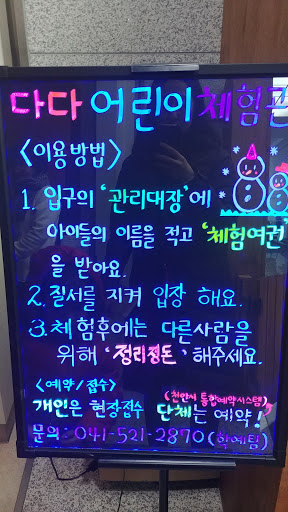 다다어린이체험관
<이용방법>
1. 입구의 '관리대장'에
아이들의 이름을 적고 '체험여권'
을 받아요.
2. 질서를 지켜 입장 해요.
3. 체험후에는 다른사람을
위해 '정리정돈' 해주세요.
<예약/접수> (천안시 통합예약시스템)
개인은 현장접수 단체는 예약!
문의: 041-521-2870 (학예팀)